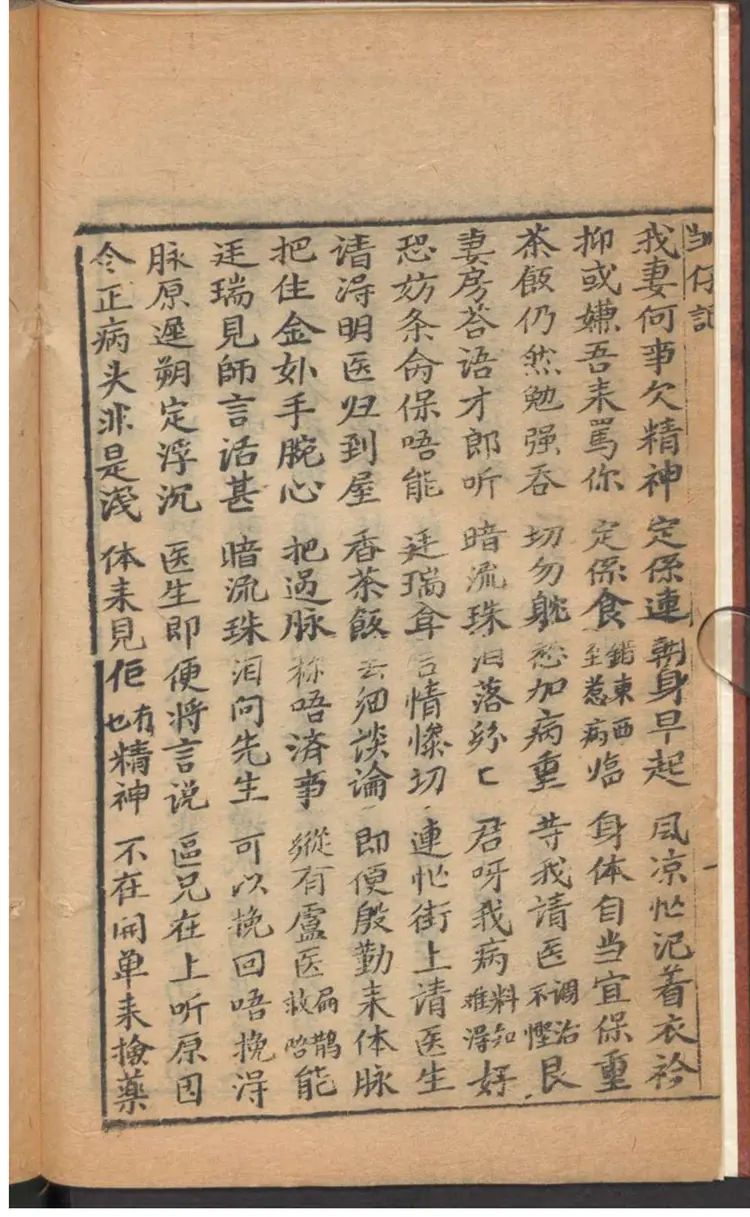 仔記
我妻何事欠精神 定係連朝身早起 風凉忙汜着衣衿
抑或嫌吾来罵你 定係食錯東西至惹病臨 身体自当宜保重
茶飯仍然勉强吞 切勿躭愁加病重 等我请医调治不慳艮
妻房荅语才郎听 暗流珠泪落纷〻 君呀我病料知难得好
恐妨条命保唔能 廷瑞听言情惨切 連忙街上请医生
请得明医归到屋 香茶飯去细談論 即便殷勤来体脉
把住金妙手腕心 把过脉称唔济事 縱有盧医扁鹊救唔能
廷瑞見師言活甚 暗流珠泪问先生 可以挽回唔挽得
脉原遲朔定浮沉 医生即便将言说 區兄在上听原因
令正病头非是浅 体来見佢也有精神 不在開单来撿藥